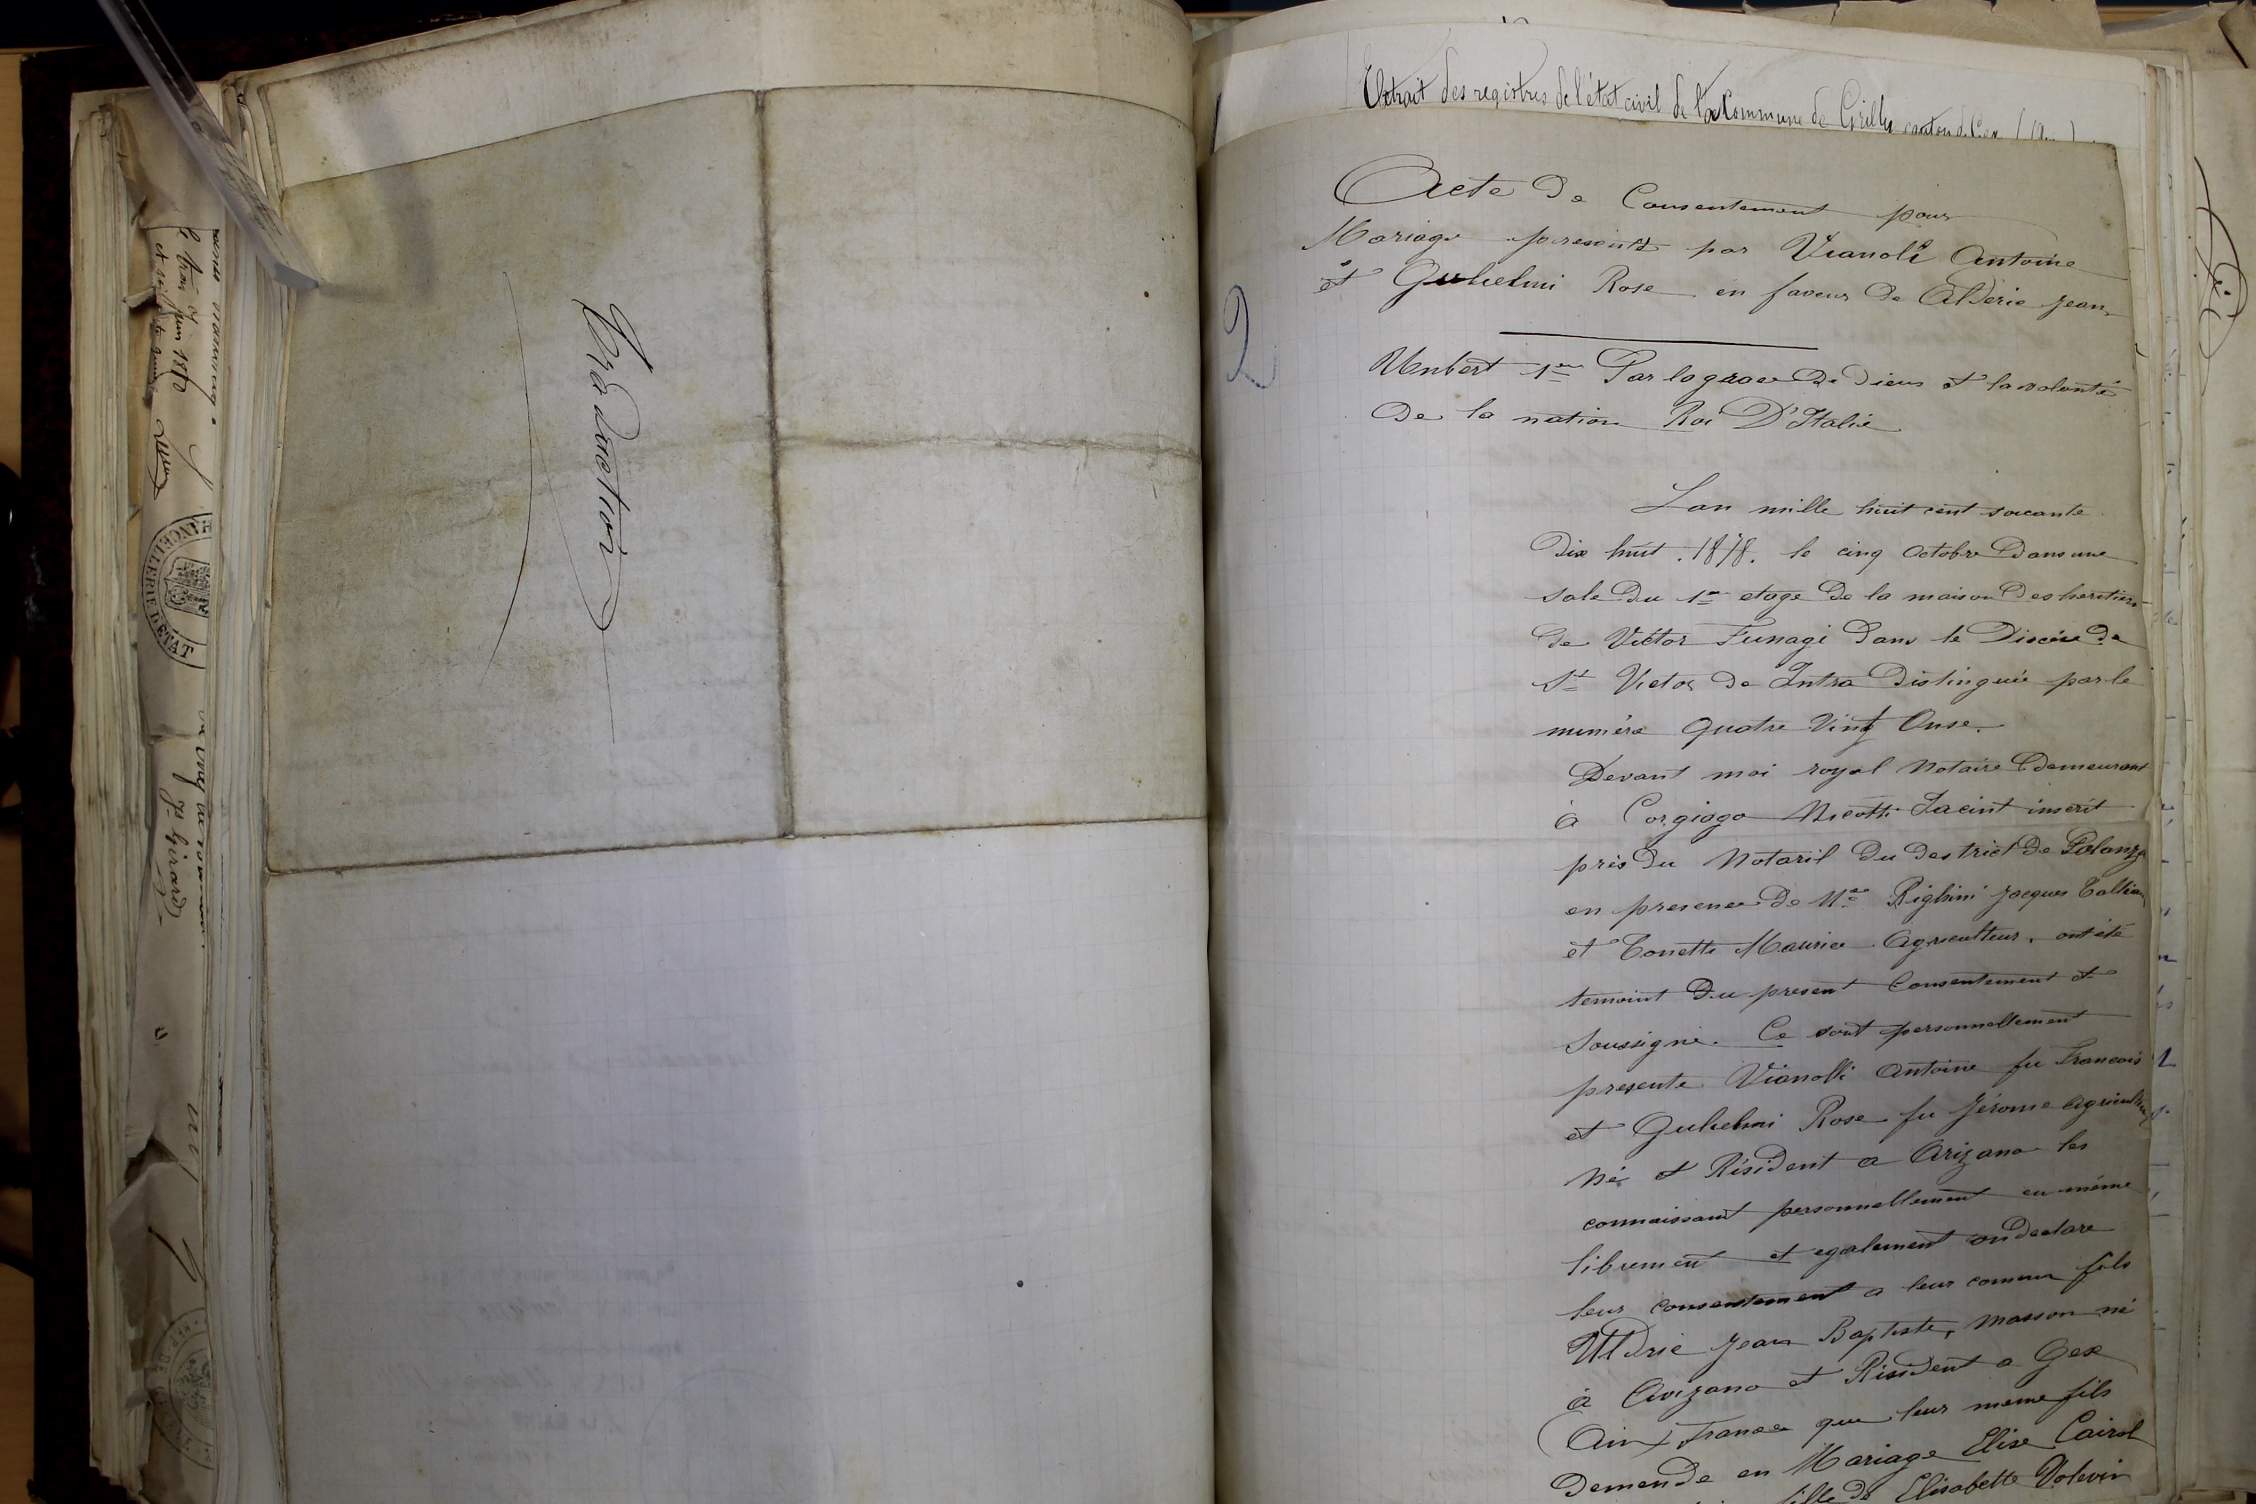 le trois Juin 1880
CHANCELLERIE D'ÉTAT
Jh. Girard
Traduction
Extrait des registres de l'état civil de la Commune de Grilly canton de Gex (Ain)
2
Acte De Consentement pour
Mariage presenté par Vianoli Antoine
et Gulielmi Rose en faveur De Alderic Jean
Umbert 1er Par la grace De Dieux et la volonté
De la nation Roi D'Italie
Lan mille huit cent soicante
Dix huit . 1878. le cinq Octobre Dans une
sale Du 1er etage De la maison Des heritiers
De Victor Funagi Dans le Diocése De
St Victor De Intra Distinguée par le
numéro Quatre Vingt Onse.
Devant moi royal Notaire Demeurant
à Corgiago Nicotti Jacint inscrit
près Du Notaril Du destrict De Palanza
en presence De Mrs Righini Jacques
et Tonetti Maurice Agriculteur, ont été
temoint Du present Consentement et
Soussigné. Ce sont personnellement
presente Vianolli Antoine fu Francois
et Gulielmi Rose fu Jérome Agriculteur
Né et Résident a Arizano les
connaissant personnellement eu même
librement et egalement on Declare
leur consentement a leur commun fils
Uldric Jean Baptiste, masson né
à Avizano et Résident a Gex
(Ain) France que leur meme fils
Demende en Mariage Elise Cairol
fille De Elisabette Volevin